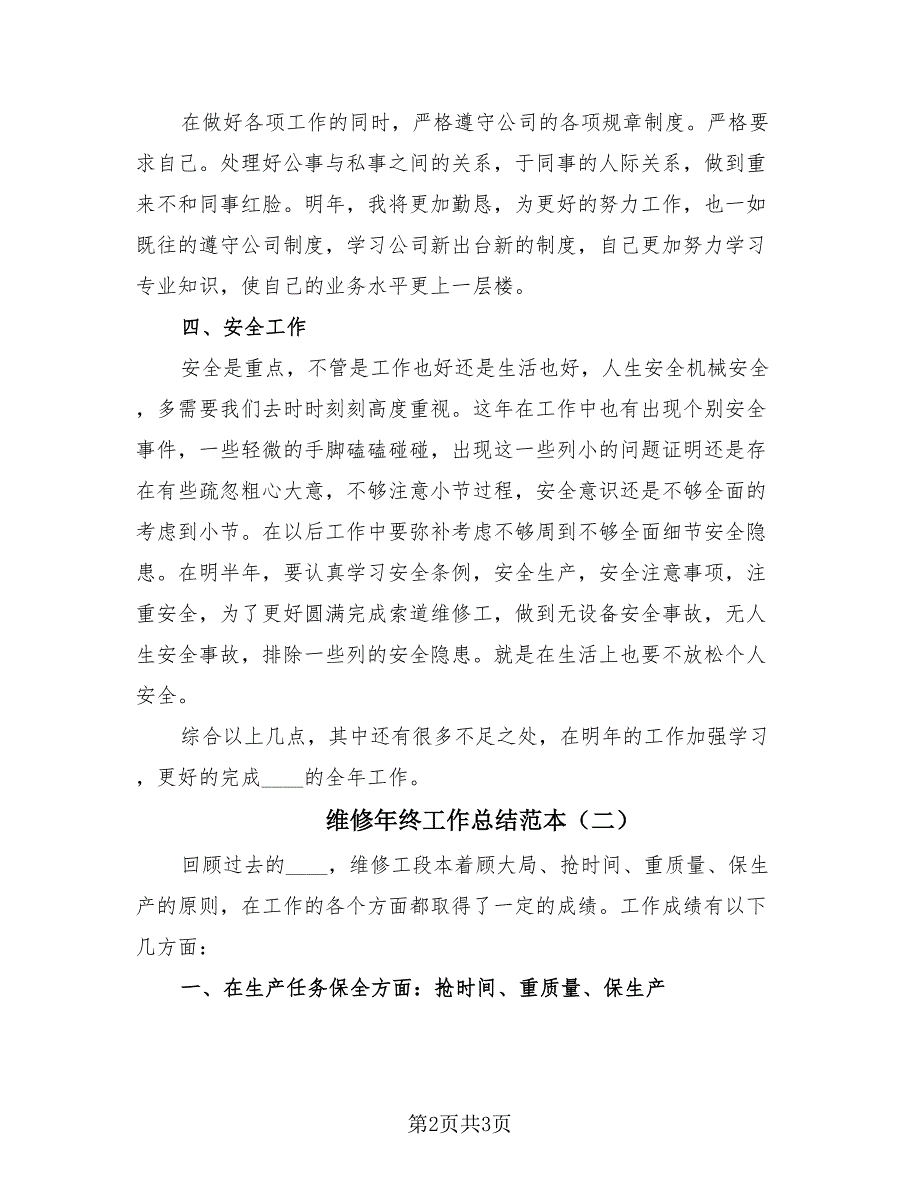 在做好各项工作的同时，严格遵守公司的各项规章制度。严格要
求自己。处理好公事与私事之间的关系，于同事的人际关系，做到重
来不和同事红脸。明年，我将更加勤恳，为更好的努力工作，也一如
既往的遵守公司制度，学习公司新出台新的制度，自己更加努力学习
专业知识，使自己的业务水平更上一层楼。
四、安全工作
安全是重点，不管是工作也好还是生活也好，人生安全机械安全
，多需要我们去时时刻刻高度重视。这年在工作中也有出现个别安全
事件，一些轻微的手脚磕磕碰碰，出现这一些列小的问题证明还是存
在有些疏忽粗心大意，不够注意小节过程，安全意识还是不够全面的
考虑到小节。在以后工作中要弥补考虑不够周到不够全面细节安全隐
患。在明半年，要认真学习安全条例，安全生产，安全注意事项，注
重安全，为了更好圆满完成索道维修工，做到无设备安全事故，无人
生安全事故，排除一些列的安全隐患。就是在生活上也要不放松个人
安全。
综合以上几点，其中还有很多不足之处，在明年的工作加强学习
，更好的完成____的全年工作。
维修年终工作总结范本（二）
回顾过去的____，维修工段本着顾大局、抢时间、重质量、保生
产的原则，在工作的各个方面都取得了一定的成绩。工作成绩有以下
几方面：
一、在生产任务保全方面：抢时间、重质量、保生产
第2页共3页